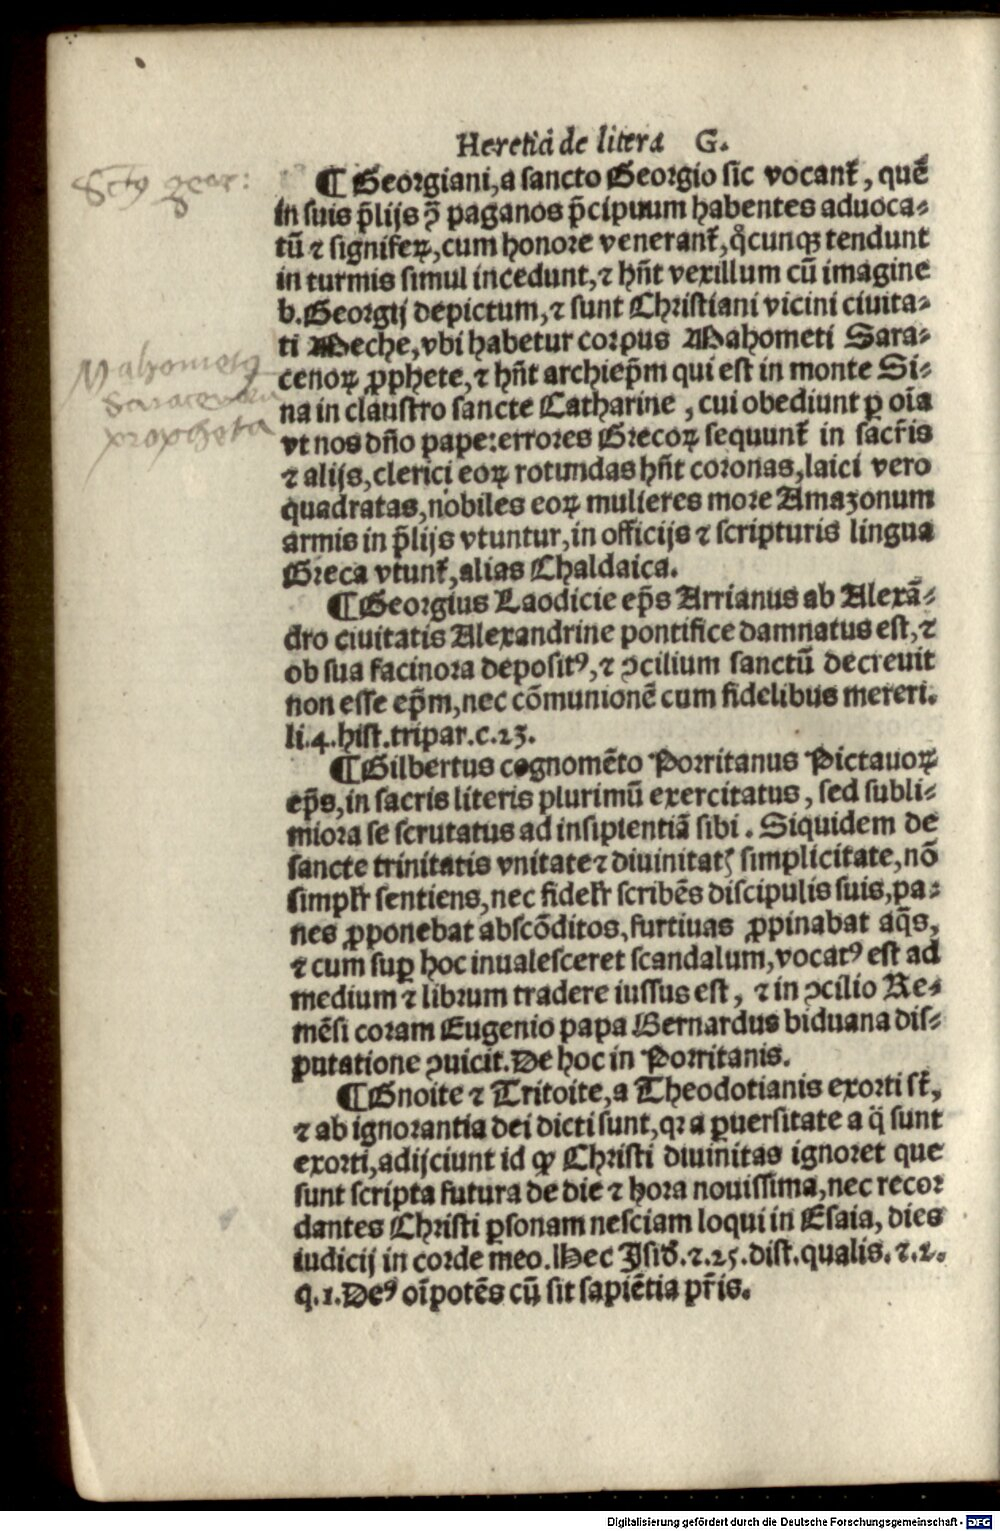 Heretici de litera G.
¶ Georgiani, a sancto Georgio sic vocant᷑, quē
in suis p̄lijs ꝯ̄ paganos p̄cipuum habentes aduoca⸗
tū ⁊ signifeꝝ, cum honore venerant᷑, q̊cunqꝫ tendunt
in turmis simul incedunt, ⁊ hn̄t vexillum cū imagine
b. Georgij depictum, ⁊ sunt Christiani vicini ciuita⸗
ti Meche, vbi habetur corpus Mahometi Sara⸗
cenoꝝ ꝓphete, ⁊ hn̄t archiep̄m qui est in monte Si⸗
na in claustro sancte Catharine, cui obediunt ꝑ oīa
vt nos dn̄o pape: errores Grecoꝝ sequunt᷑ in sacr̄is
⁊ alijs, clerici eoꝝ rotundas hn̄t coronas, laici vero
quadratas, nobiles eoꝝ mulieres more Amazonum
armis in p̄lijs vtuntur, in officijs ⁊ scripturis lingua
Greca vtunt᷑, alias Chaldaica.
¶ Georgius Laodicie ep̄s Arrianus ab Alexā⸗
dro ciuitatis Alexandrine pontifice damnatus est, ⁊
ob sua facinora deposit⁹, ⁊ ꝯcilium sanctū decreuit
non esse ep̄m, nec cōmunionē cum fidelibus mereri.
li. 4. hist. tripar. c. 23.
¶ Gilbertus cognomēto Porritanus Pictauoꝝ
ep̄s, in sacris literis plurimū exercitatus, sed subli⸗
miora se scrutatus ad insipientiā sibi. Siquidem de
sancte trinitatis vnitate ⁊ diuinitatꝭ simplicitate, nō
simpłr sentiens, nec fidełr scribēs discipulis suis, pa⸗
nes ꝓponebat abscōditos, furtiuas ꝓpinabat aq̄s,
⁊ cum suꝑ hoc inualesceret scandalum, vocat⁹ est ad
medium ⁊ librum tradere iussus est, ⁊ in ꝯcilio Re⸗
mēsi coram Eugenio papa Bernardus biduana dis⸗
putatione ꝯuicit. De hoc in Porritanis.
¶ Gnoite ⁊ Tritoite, a Theodotianis exorti st᷑,
⁊ ab ignorantia dei dicti sunt, qꝛ a ꝑuersitate a q̄ sunt
exorti, adijciunt id ꝙ Christi diuinitas ignoret que
sunt scripta futura de die ⁊ hora nouissima, nec recor
dantes Christi ꝑsonam nesciam loqui in Esaia, dies
iudicij in corde meo. Hec Isid. ⁊. 25. dist. qualis. ⁊. 1.
q. 1. De⁹ oīpotēs cū sit sapiētia pr̄is.
Mahometꝰ
Saracenoru
propheta
Digitalisierung gefördert durch die Deutsche Forschungsgemeinschaft - DFG